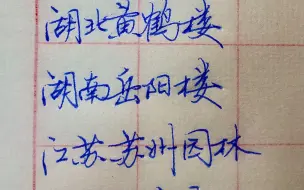 湖北黄鹤楼
湖南岳阳楼
江苏苏州园林